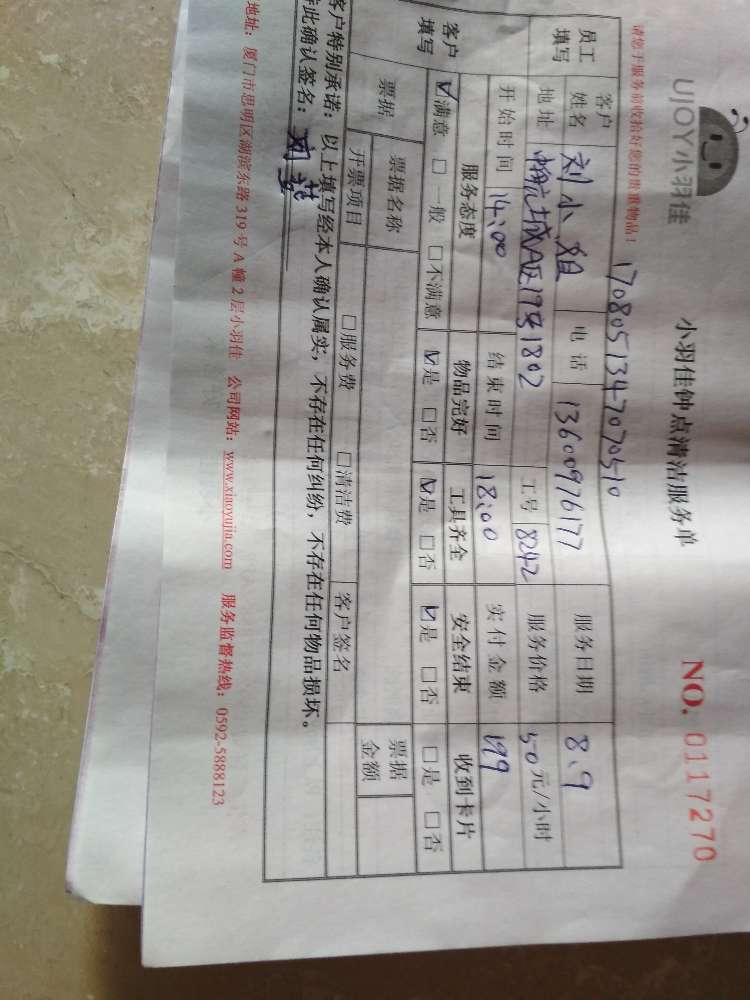 UJOY小羽佳
小羽佳钟点清洁服务单
NO. 0117270
请您于服务前收拾好您的贵重物品！
1708051347070510
员工填写 客户姓名 刘小姐 电话 13600976177 服务日期 8.9
地址 城A区19号1802 工号 8242 服务价格 50元/小时
开始时间 14:00 结束时间 18:00 实付金额 199
客户填写 服务态度 物品完好 工具齐全 安全结束 收到卡片
☑满意 □一般 □不满意 ☑是 □否 ☑是 □否 ☑是 □否 □是 □否
票据 票据名称 票据金额
开票项目 □服务费 □清洁费 客户签名
客户特别承诺：以上填写经本人确认属实，不存在任何纠纷，不存在任何物品损坏。
特此确认签名：刘
地址：厦门市思明区湖滨东路319号A幢2层小羽佳 公司网站：www.xiaoyujia.com 服务监督热线：0592-5888123